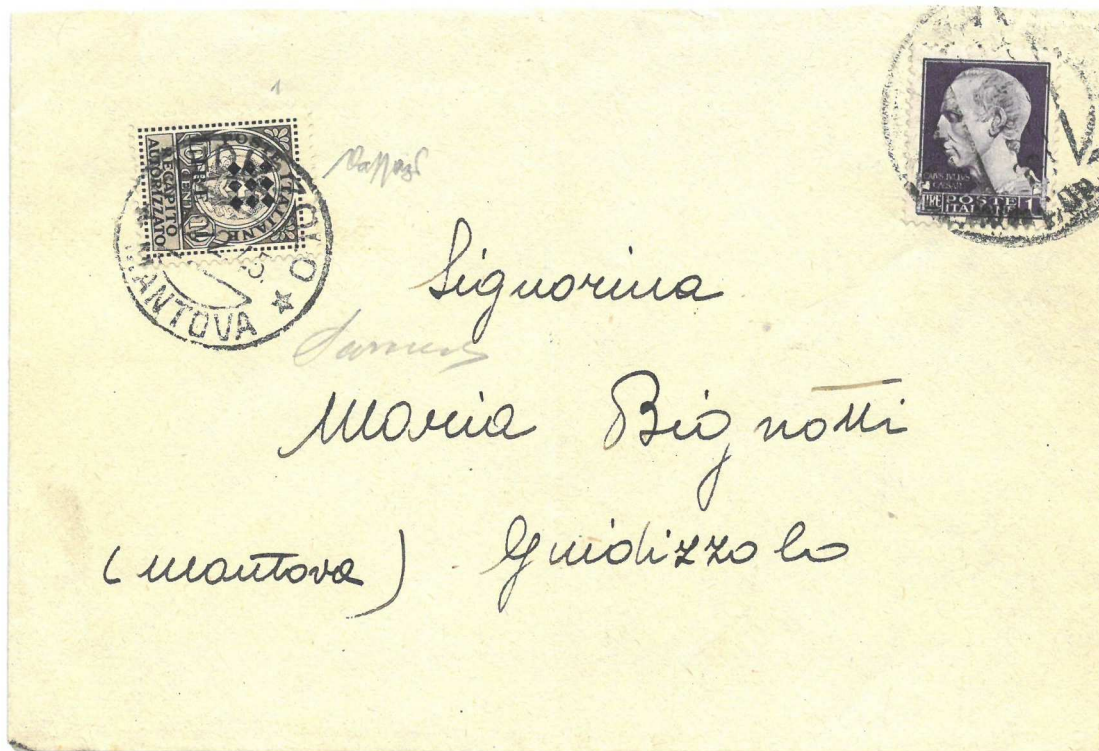 1
POSTE ITALIANE
RECAPITO
AUTORIZZATO
MANTOVA
CAIVS IVLIVS
CAESAR
LIRE POSTE 1
ITALIANE
Signorina
Maria Bignotti
(Mantova) Guidizzolo